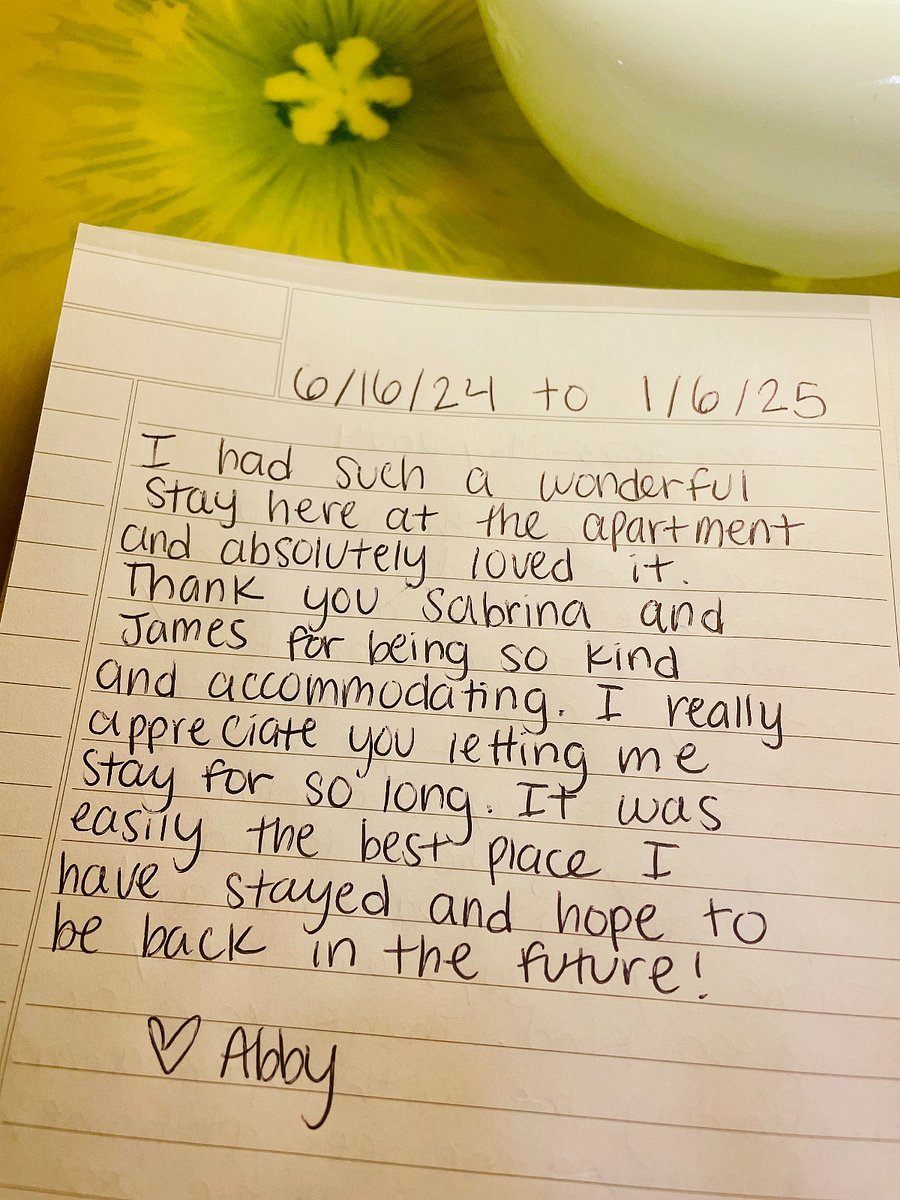 6/16/24 to 1/6/25
I had such a wonderful
stay here at the apartment
and absolutely loved it.
Thank you Sabrina and
James for being so kind
and accommodating. I really
appreciate you letting me
stay for so long. It was
easily the best place I
have stayed and hope to
be back in the future!
♡ Abby